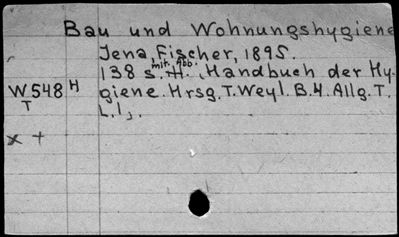 Bau und Wohnungshygiene
Jena, Fischer, 1895.
138 s. mit Abb. Handbuch der Hy-
W 548 H giene. Hrsg. T. Weyl. B.4. Allg. T.
T L. 1,.
x +